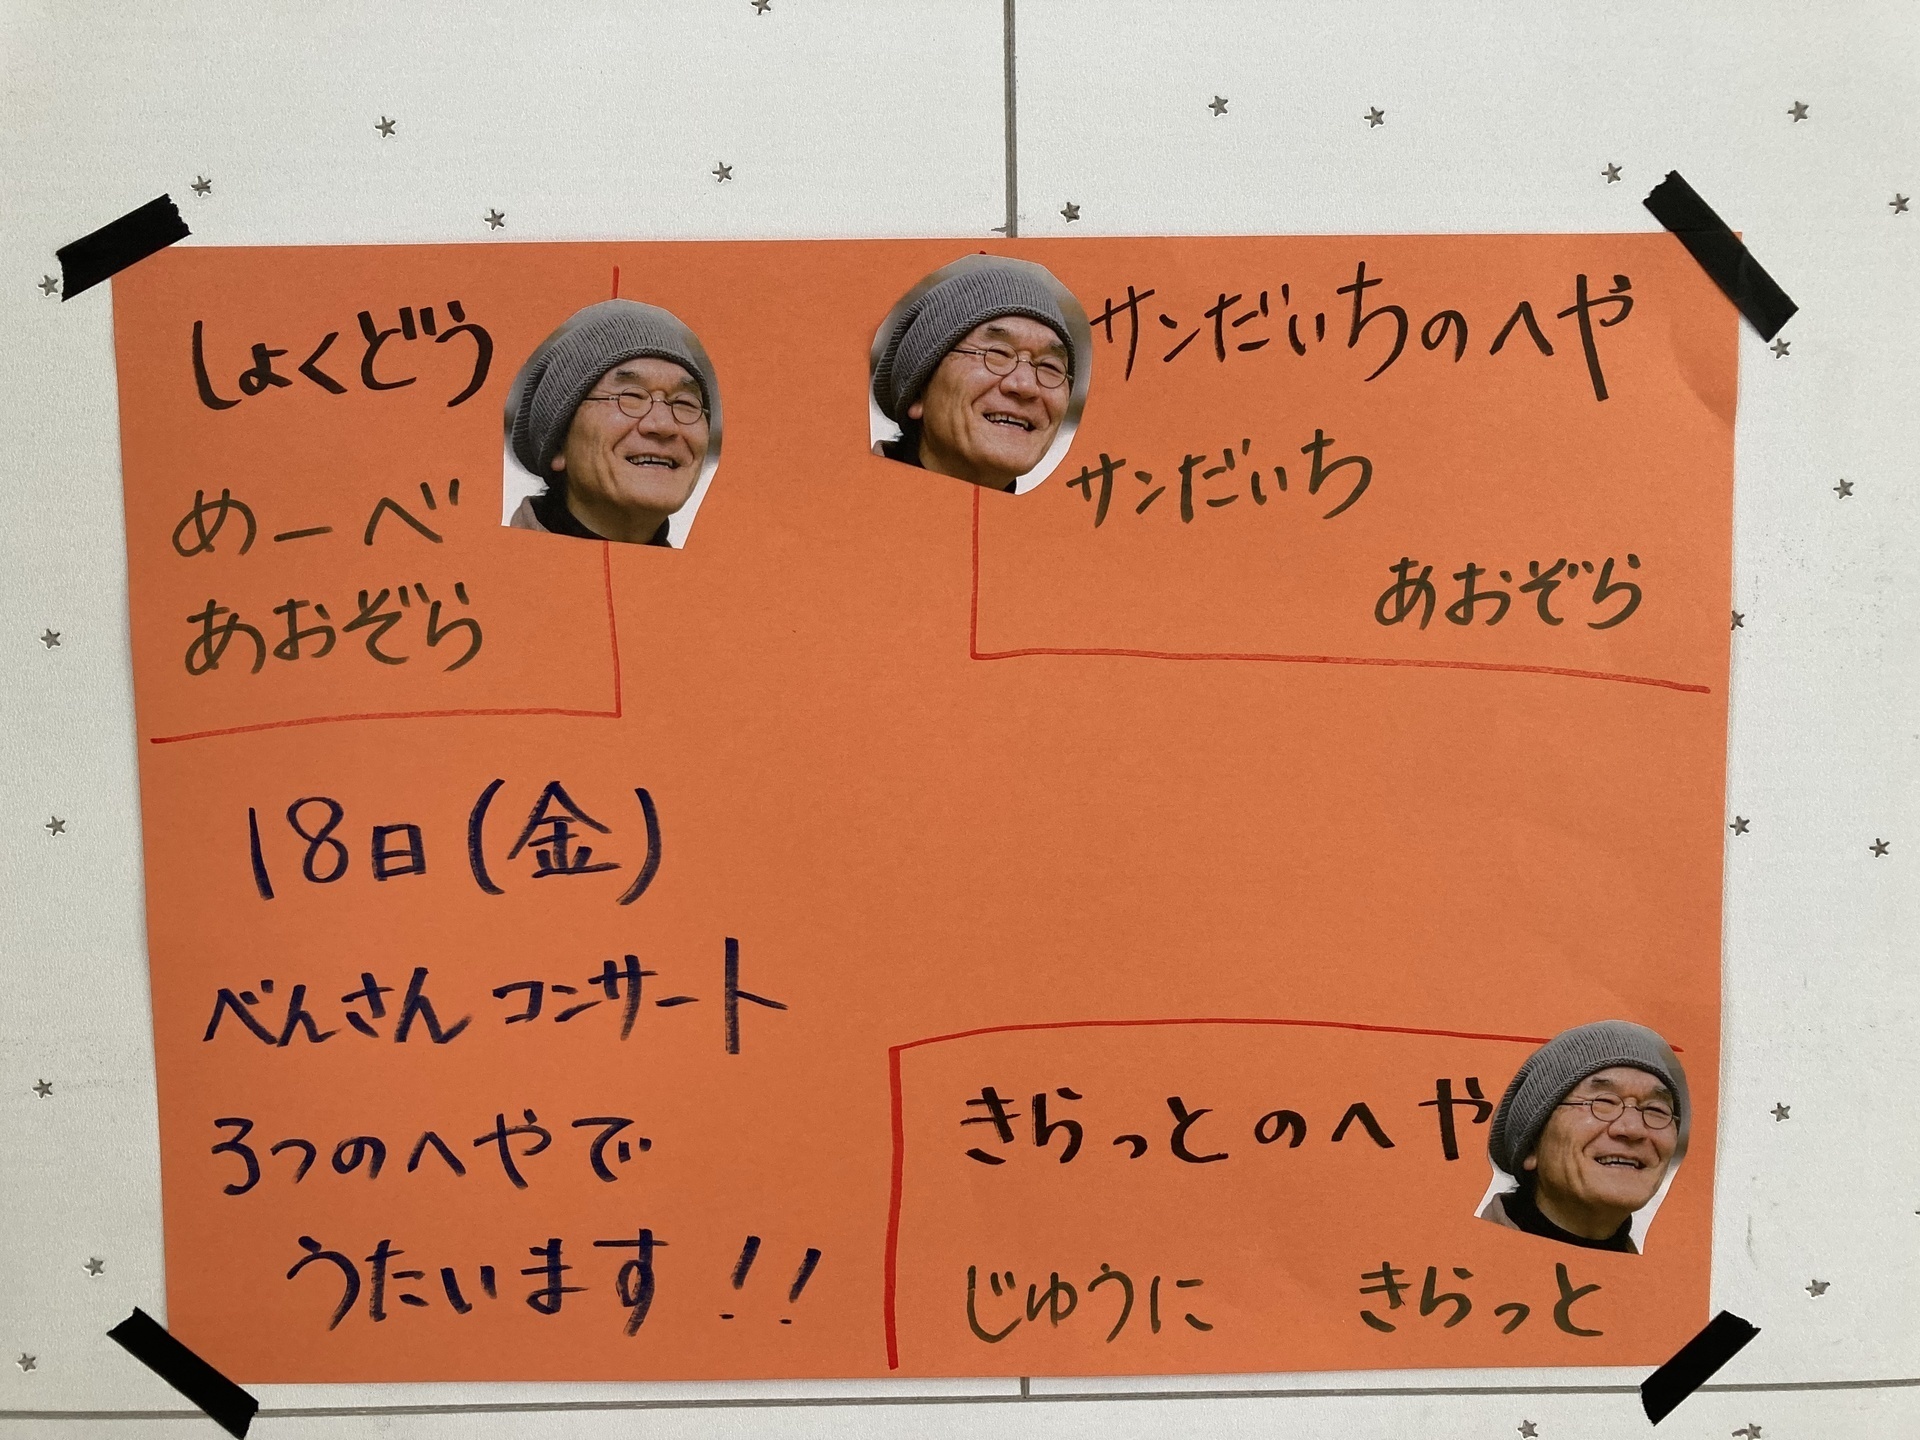 しょくどう
めーべ
あおぞら
サンだいちのへや
サンだいち
あおぞら
18日(金)
べんさんコンサート
3つのへやで
うたいます!!
きらっとのへや
じゅうに きらっと